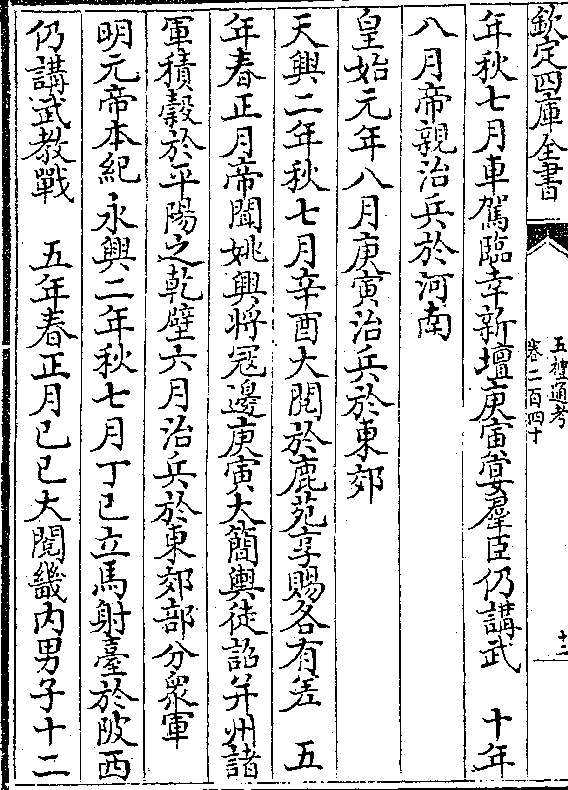 欽定四庫全書
五禮通考
卷二百四十
十二
年秋七月車駕臨幸新壇庚寅宴羣臣仍講武　十年
八月帝親治兵於河南
皇始元年八月庚寅治兵於東郊
天興二年秋七月辛酉大閱於鹿苑享賜各有差　五
年春正月帝聞姚興將冦邊庚寅大簡輿徒詔并州諸
軍積穀於平陽之乾壁六月治兵於東郊部分衆軍
明元帝本紀永興二年秋七月丁巳立馬射臺於陂西
仍講武教戰　五年春正月己巳大閱畿内男子十二